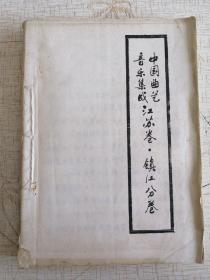 中国曲艺
音乐集成江苏卷·镇江分卷